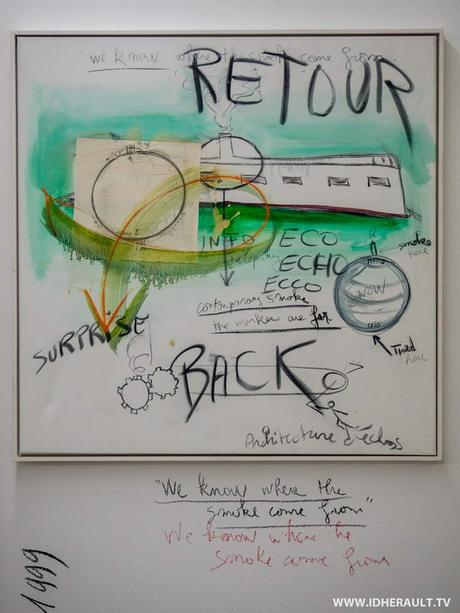 we know where the smoke come from
RETOUR
INTO
ECO
ECHO
ECCO
smoke
here
WOW
contemporary smoke
the workers are far
SURPRISE
BACK
Tired
Architecture d'échos
"We know where the
smoke come from"
We know where the
smoke come from
1999
WWW.IDHERAULT.TV